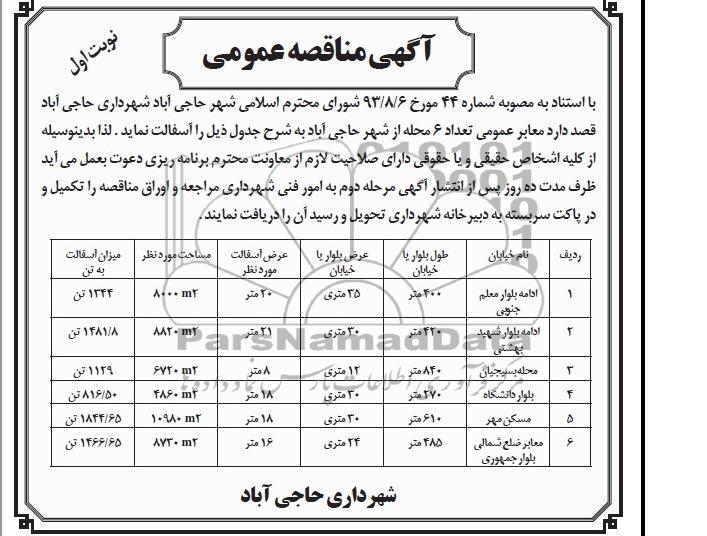 آگهی مناقصه عمومی
نوبت اول
با استناد به مصوبه شماره ۴۴ مورخ ۹۳/۸/۶ شورای محترم اسلامی شهر حاجی آباد شهرداری حاجی آباد
قصد دارد معابر عمومی تعداد ۶ محله از شهر حاجی آباد به شرح جدول ذیل را آسفالت نماید . لذا بدینوسیله
از کلیه اشخاص حقیقی و یا حقوقی دارای صلاحیت لازم از معاونت محترم برنامه ریزی دعوت بعمل می آید
ظرف مدت ده روز پس از انتشار آگهی مرحله دوم به امور فنی شهرداری مراجعه و اوراق مناقصه را تکمیل و
در پاکت سربسته به دبیرخانه شهرداری تحویل و رسید آن را دریافت نمایند .
ردیف نام خیابان طول بلوار یا خیابان عرض بلوار یا خیابان عرض آسفالت مورد نظر مساحت مورد نظر میزان آسفالت به تن
۱ ادامه بلوار معلم جنوبی ۴۰۰ متر ۳۵ متری ۲۰ متر ۸۰۰۰ m۲ ۱۳۴۴ تن
۲ ادامه بلوار شهید بهشتی ۴۲۰ متر ۳۰ متری ۲۱ متر ۸۸۲۰ m۲ ۱۴۸۱/۸ تن
۳ محله بسیجیان ۸۴۰ متر ۱۲ متری ۸ متر ۶۷۲۰ m۲ ۱۱۲۹ تن
۴ بلوار دانشگاه ۲۷۰ متر ۳۰ متری ۱۸ متر ۴۸۶۰ m۲ ۸۱۶/۵۰ تن
۵ مسکن مهر ۶۱۰ متر ۳۰ متری ۱۸ متر ۱۰۹۸۰ m۲ ۱۸۴۴/۶۵ تن
۶ معابر ضلع شمالی بلوار جمهوری ۴۸۵ متر ۲۴ متری ۱۶ متر ۸۷۳۰ m۲ ۱۴۶۶/۶۵ تن
شهرداری حاجی آباد
ParsNamadData
مرکز فرآوری اطلاعات پارس نماد داده ها